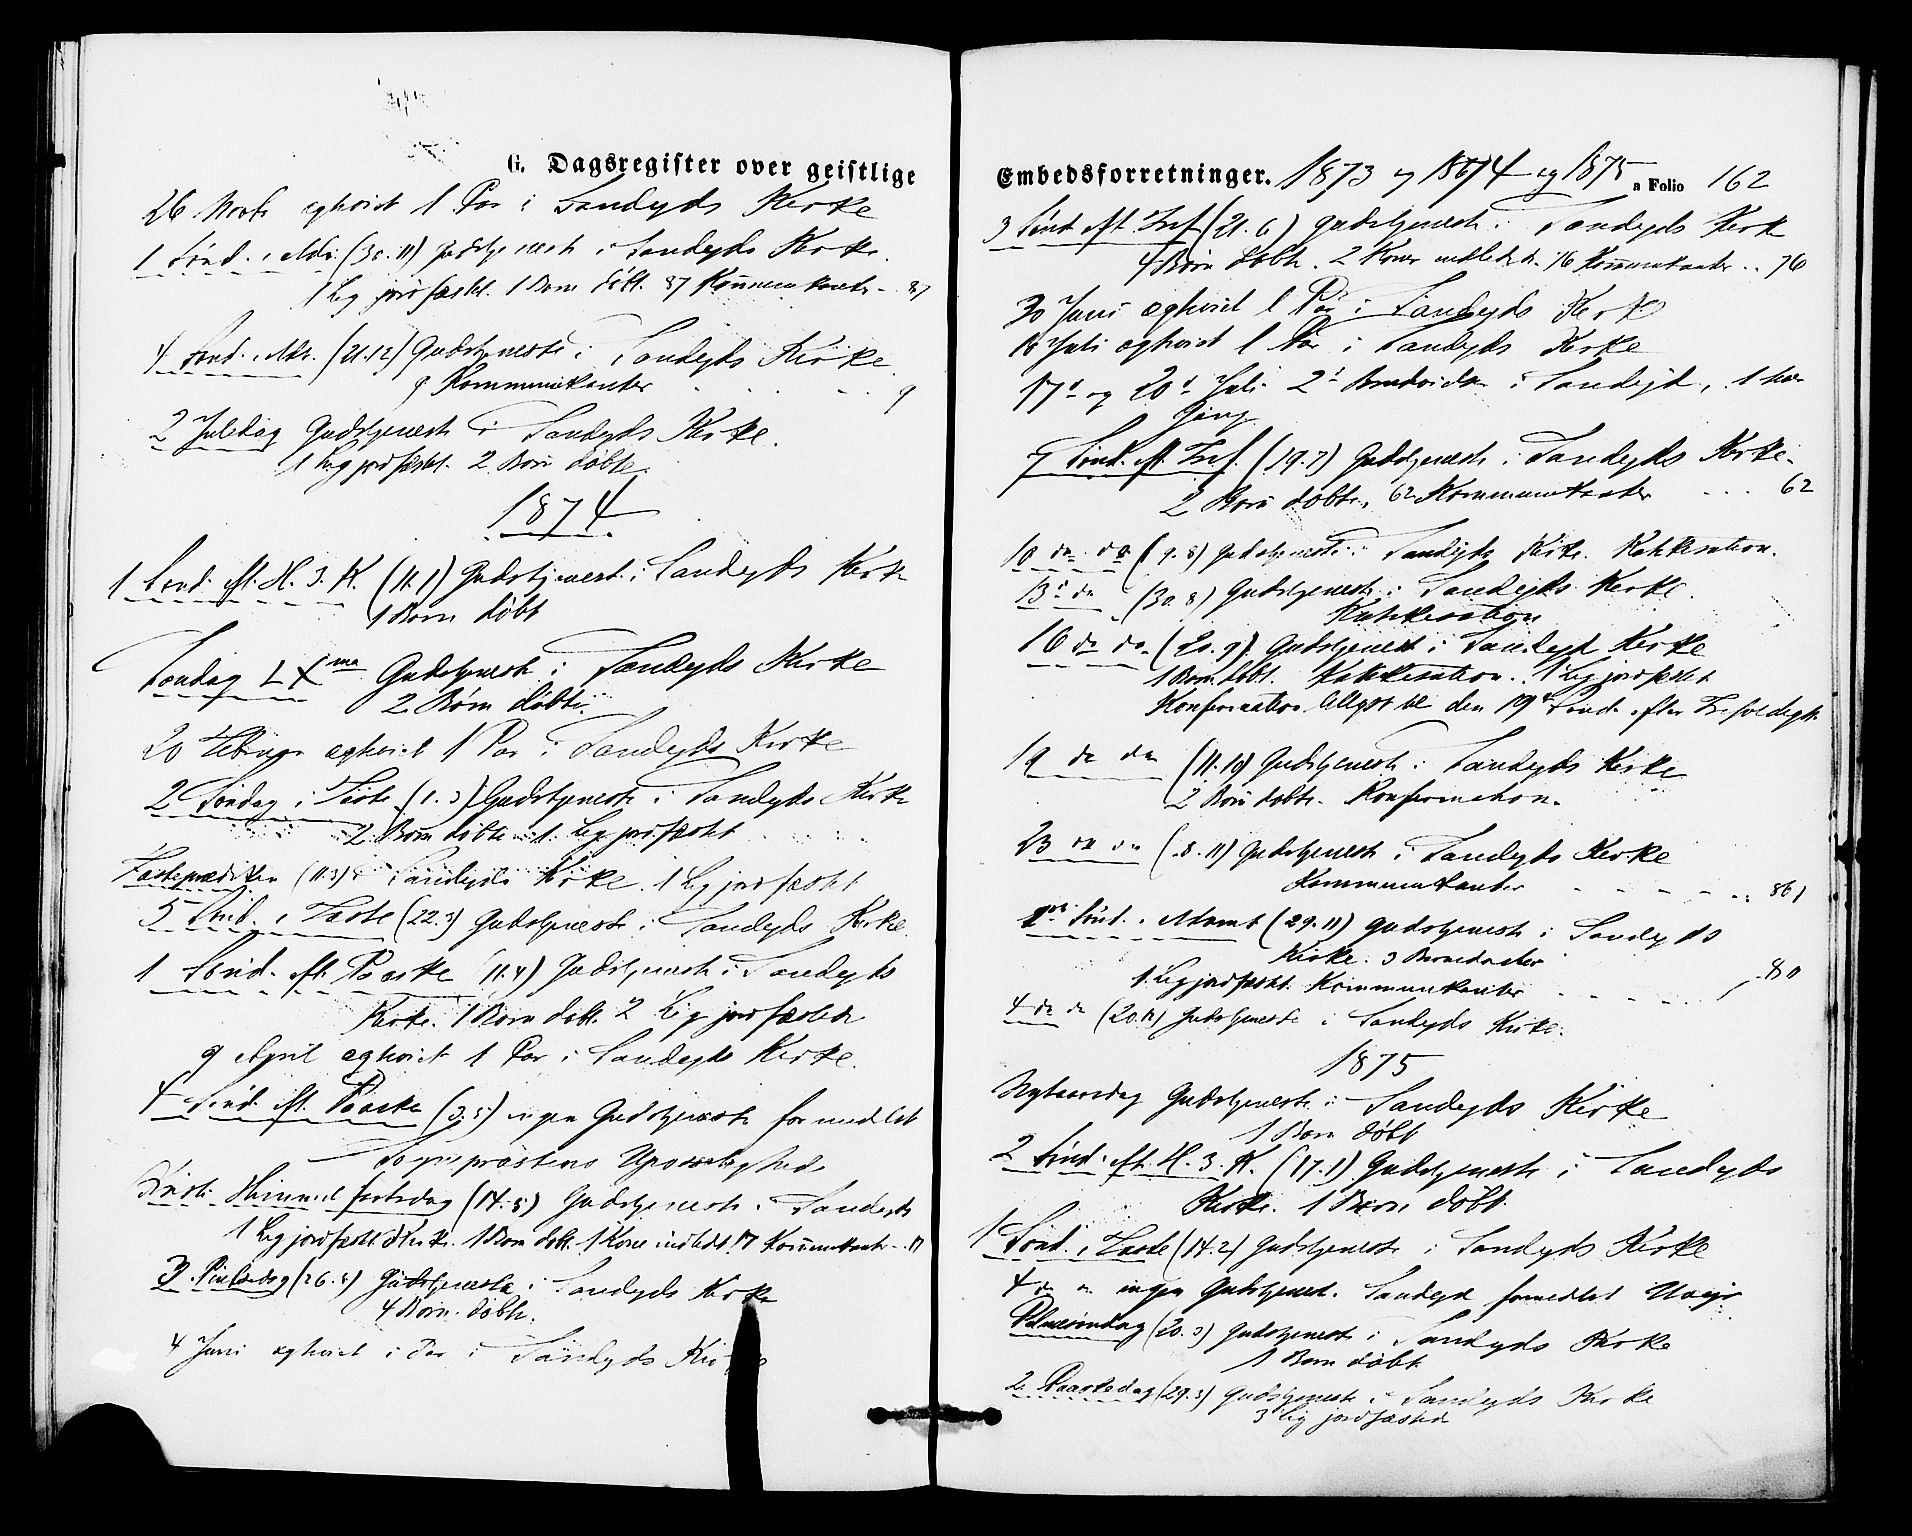 G. Dagsregister over geistlige
26 Novb egtviet 1 Par i Sandeyds Kirke
1 Sönd. i Adv. (30.11) Gudstjeneste i Sandeyds Kirke.
1 Lig jordfæstet. 1 Barn döbt. 87 Kommunikanter - 87
4 Sönd. i Adv. (21.12) Gudstjeneste i Sandeyds Kirke
9 Kommunikanter 9
2 Juledag Gudstjeneste i Sandeyds Kirke.
1 Lig jordfæstet. 2 Börn döbte.
1874
1 Sönd. eft. H. 3. K. (11.1) Gudstjeneste i Sandeyds Kirke
1 Barn döbt
Söndag LXma Gudstjeneste i Sandeyds Kirke
2 Börn döbte.
20 Februar egtviet 1 Par i Sandeyds Kirke
2 Söndag i Faste (1.3) Gudstjeneste i Sandeyds Kirke
2 Börn döbte. 1 Lig jordfæstet
Fasteprædiken (11.3) i Sandeyds Kirke. 1 Lig jordfæstet
5 Sönd. i Faste (22.3) Gudstjeneste i Sandeyds Kirke
1 Sönd. eft. Paaske (11.4) Gudstjeneste i Sandeyds
Kirke. 1 Barn döbt. 2 Lig jordfæstede
9 April egtviet 1 Par i Sandeyds Kirke.
4 Sönd. eft. Paaske (3.5) ingen Gudstjeneste formedelst
Sognepræstens Upasselighed
Christi Himmelfartsdag (14.5) Gudstjeneste i Sandeyds
1 Lig jordfæstet 1 Barn döbt. 1 Kone indledt. 17 Kommunikanter - 17
3 Pintsedag (26.5) Gudstjeneste i Sandeyds Kirke
4 Börn döbte.
4 Juni egtviet 1 Par i Sandeyds Kirke
Embedsforretninger. 1873 og 1874 og 1875 a Folio 162
3 Sönd eft Tref (21.6) Gudstjeneste i Sandeyds Kirke
4 Börn döbte. 2 Koner indledede. 76 Kommunikanter .. 76
30 Juni egtviet 1 Par i Sandeyds Kirke
Juli egtviet 1 Par i Sandeyds Kirke
17d og 20d Juli 2 i Sandeyd, 1
Gang
7 Sönd. eft. Tref. (19.7) Gudstjeneste i Sandeyds Kirke.
2 Börn döbte. 62 Kommunikanter ... 62
10 do do (9.8) Gudstjeneste i Sandeyds Kirke. Katekisation.
13d do (30.8) Gudstjeneste i Sandeyds Kirke.
Katekisation
16 do do (20.9) Gudstjeneste i Sandeyd Kirke
1 Barn döbt. Katekisation. 1 Lig jordfæstet
Konfirmation tillyst til den 19d Sönd. efter Trefoldighed
19 do do (11.10) Gudstjeneste i Sandeyds Kirke
2 Börn döbte. Konfirmation.
23 do do (8.11) Gudstjeneste i Sandeyds Kirke
Kommunikanter 86
1ste Sönd. i Advent (29.11) Gudstjeneste i Sandeyds
Kirke. 3 Barnedaaber
1 Lig jordfæstet. Kommunikanter 80
4 do do (20.12) Gudstjeneste i Sandeyds Kirke.
1875
Nytaarsdag Gudstjeneste i Sandeyds Kirke
1 Barn döbt
2 Sönd. eft. H. 3. K. (17.1) Gudstjeneste i Sandeyds
Kirke. 1 Barn döbt
1 Sönd. i Faste (14.2) Gudstjeneste i Sandeyds Kirke
4 do do ingen Gudstjenest. Sandeyd formedelst Uveir
Palmesöndag (20.3) Gudstjeneste i Sandeyds Kirke
1 Barn döbt
2 Paaskedag (29.3) Gudstjeneste i Sandeyds Kirke
3 Lig jordfæsted